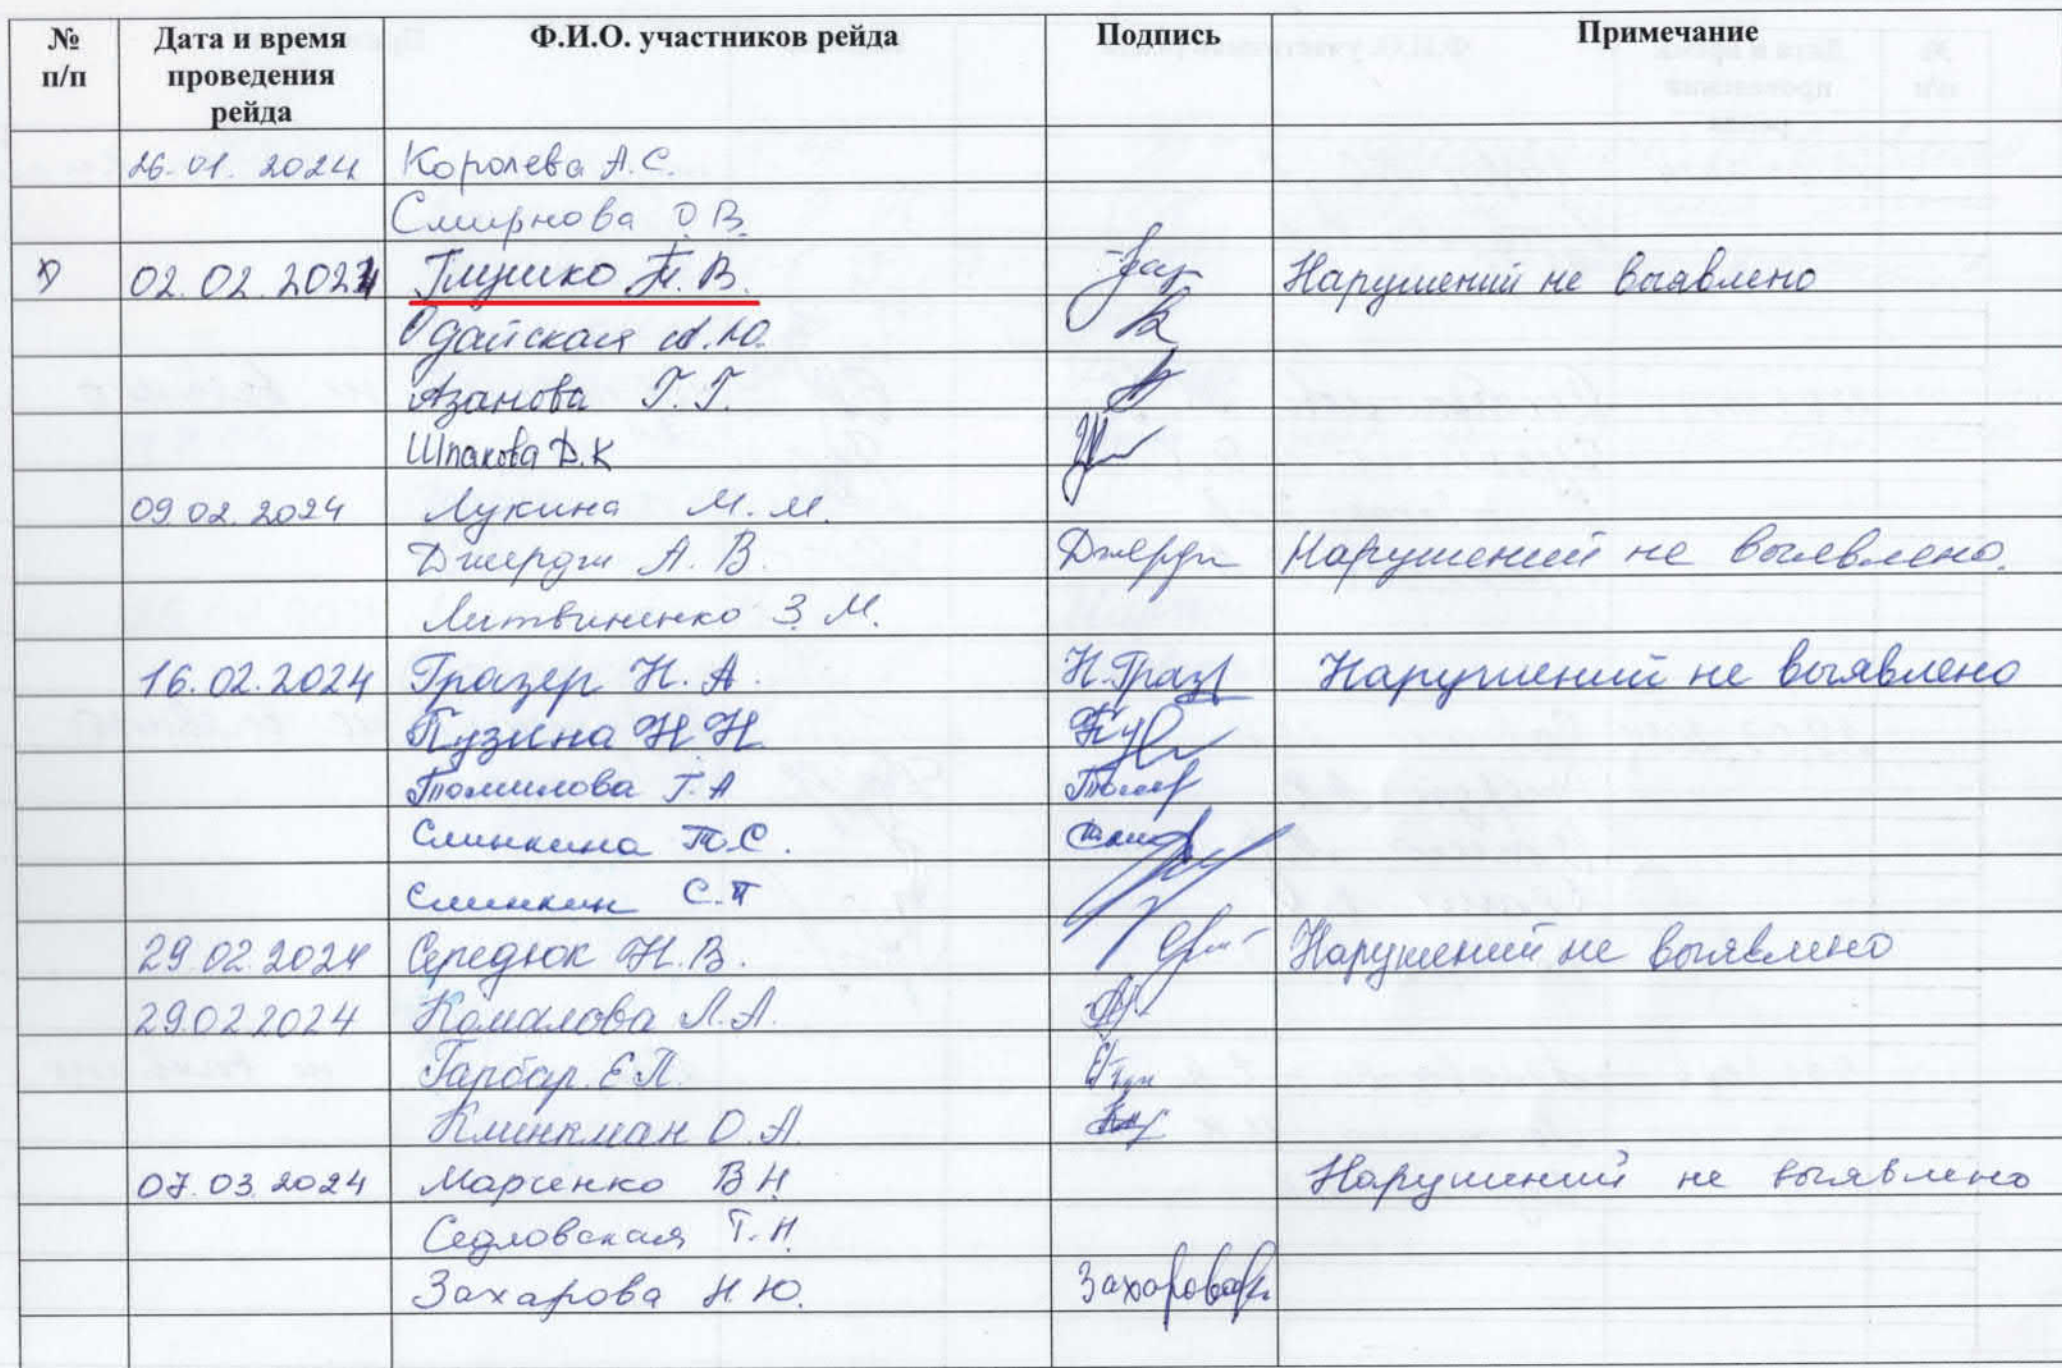 № п/п Дата и время проведения рейда Ф.И.О. участников рейда Подпись Примечание
26.01.2024 Королева А.С.
Смирнова О.В.
02.02.2024 Глушко Т.В. Нарушений не выявлено
Одайская А.Ю.
Азанова Г.Г.
Шпакова Д.К
09.02.2024 Лукина М.М.
Джердж А.В. Нарушений не выявлено.
Литвиненко З.М.
16.02.2024 Гразер Н.А. Н.Граз Нарушений не выявлено
Пузина Н.Н.
Томилова Г.А
Слинкина Т.С.
Слинкин С.П
29.02.2024 Середюк Н.В. Нарушений не выявлено
29.02.2024 Комалова Л.А.
Гарбар Е.П.
Клинкман О.А.
07.03.2024 Марченко В.Н. Нарушений не выявлено
Седловская Т.Н.
Захарова Н.Ю. Захарова